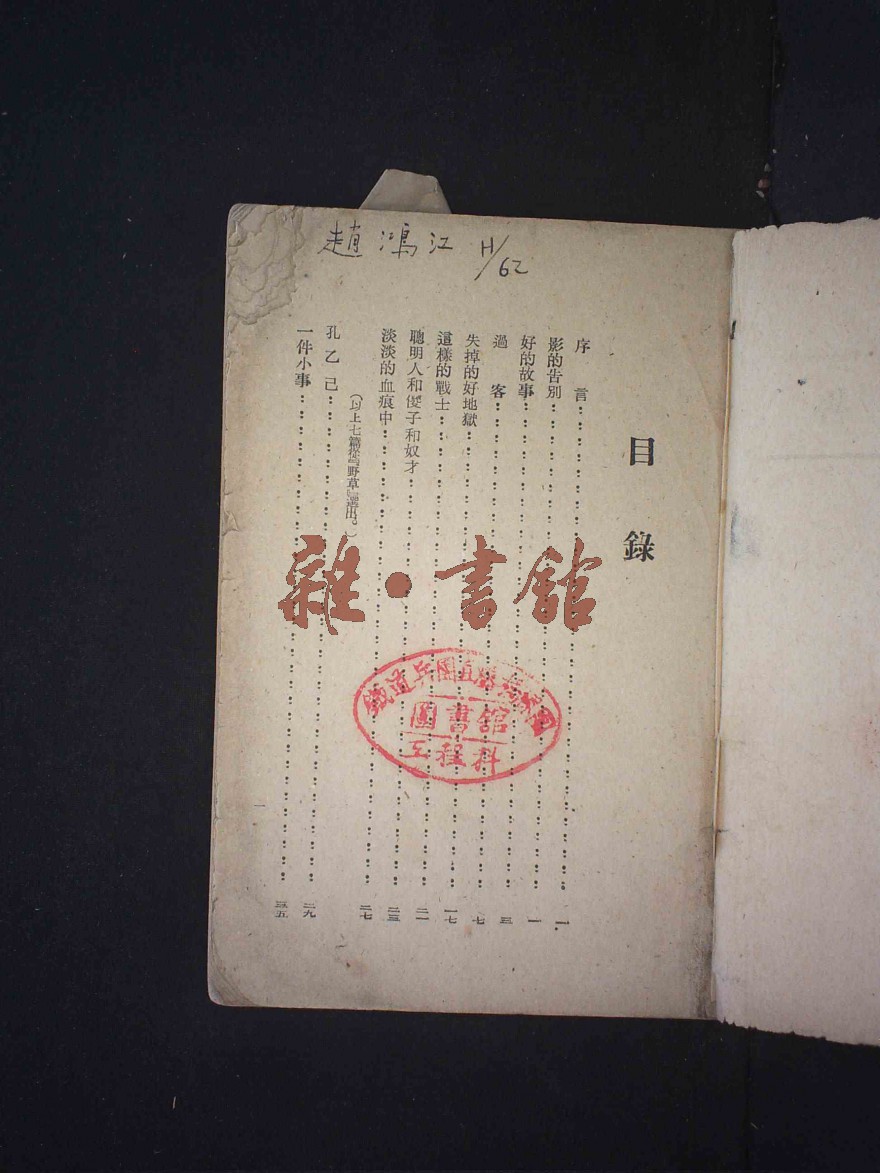 趙鴻江 H/62
目錄
序言……一
影的告別……一
好的故事……三
過客……七
失掉的好地獄……一七
這樣的戰士……二一
聰明人和傻子和奴才……二三
淡淡的血痕中……二七
(以上七篇從『野草』選出。)
孔乙己……二九
一件小事……三五
一
雜·書館
鐵道兵團直
圖書館
工程科